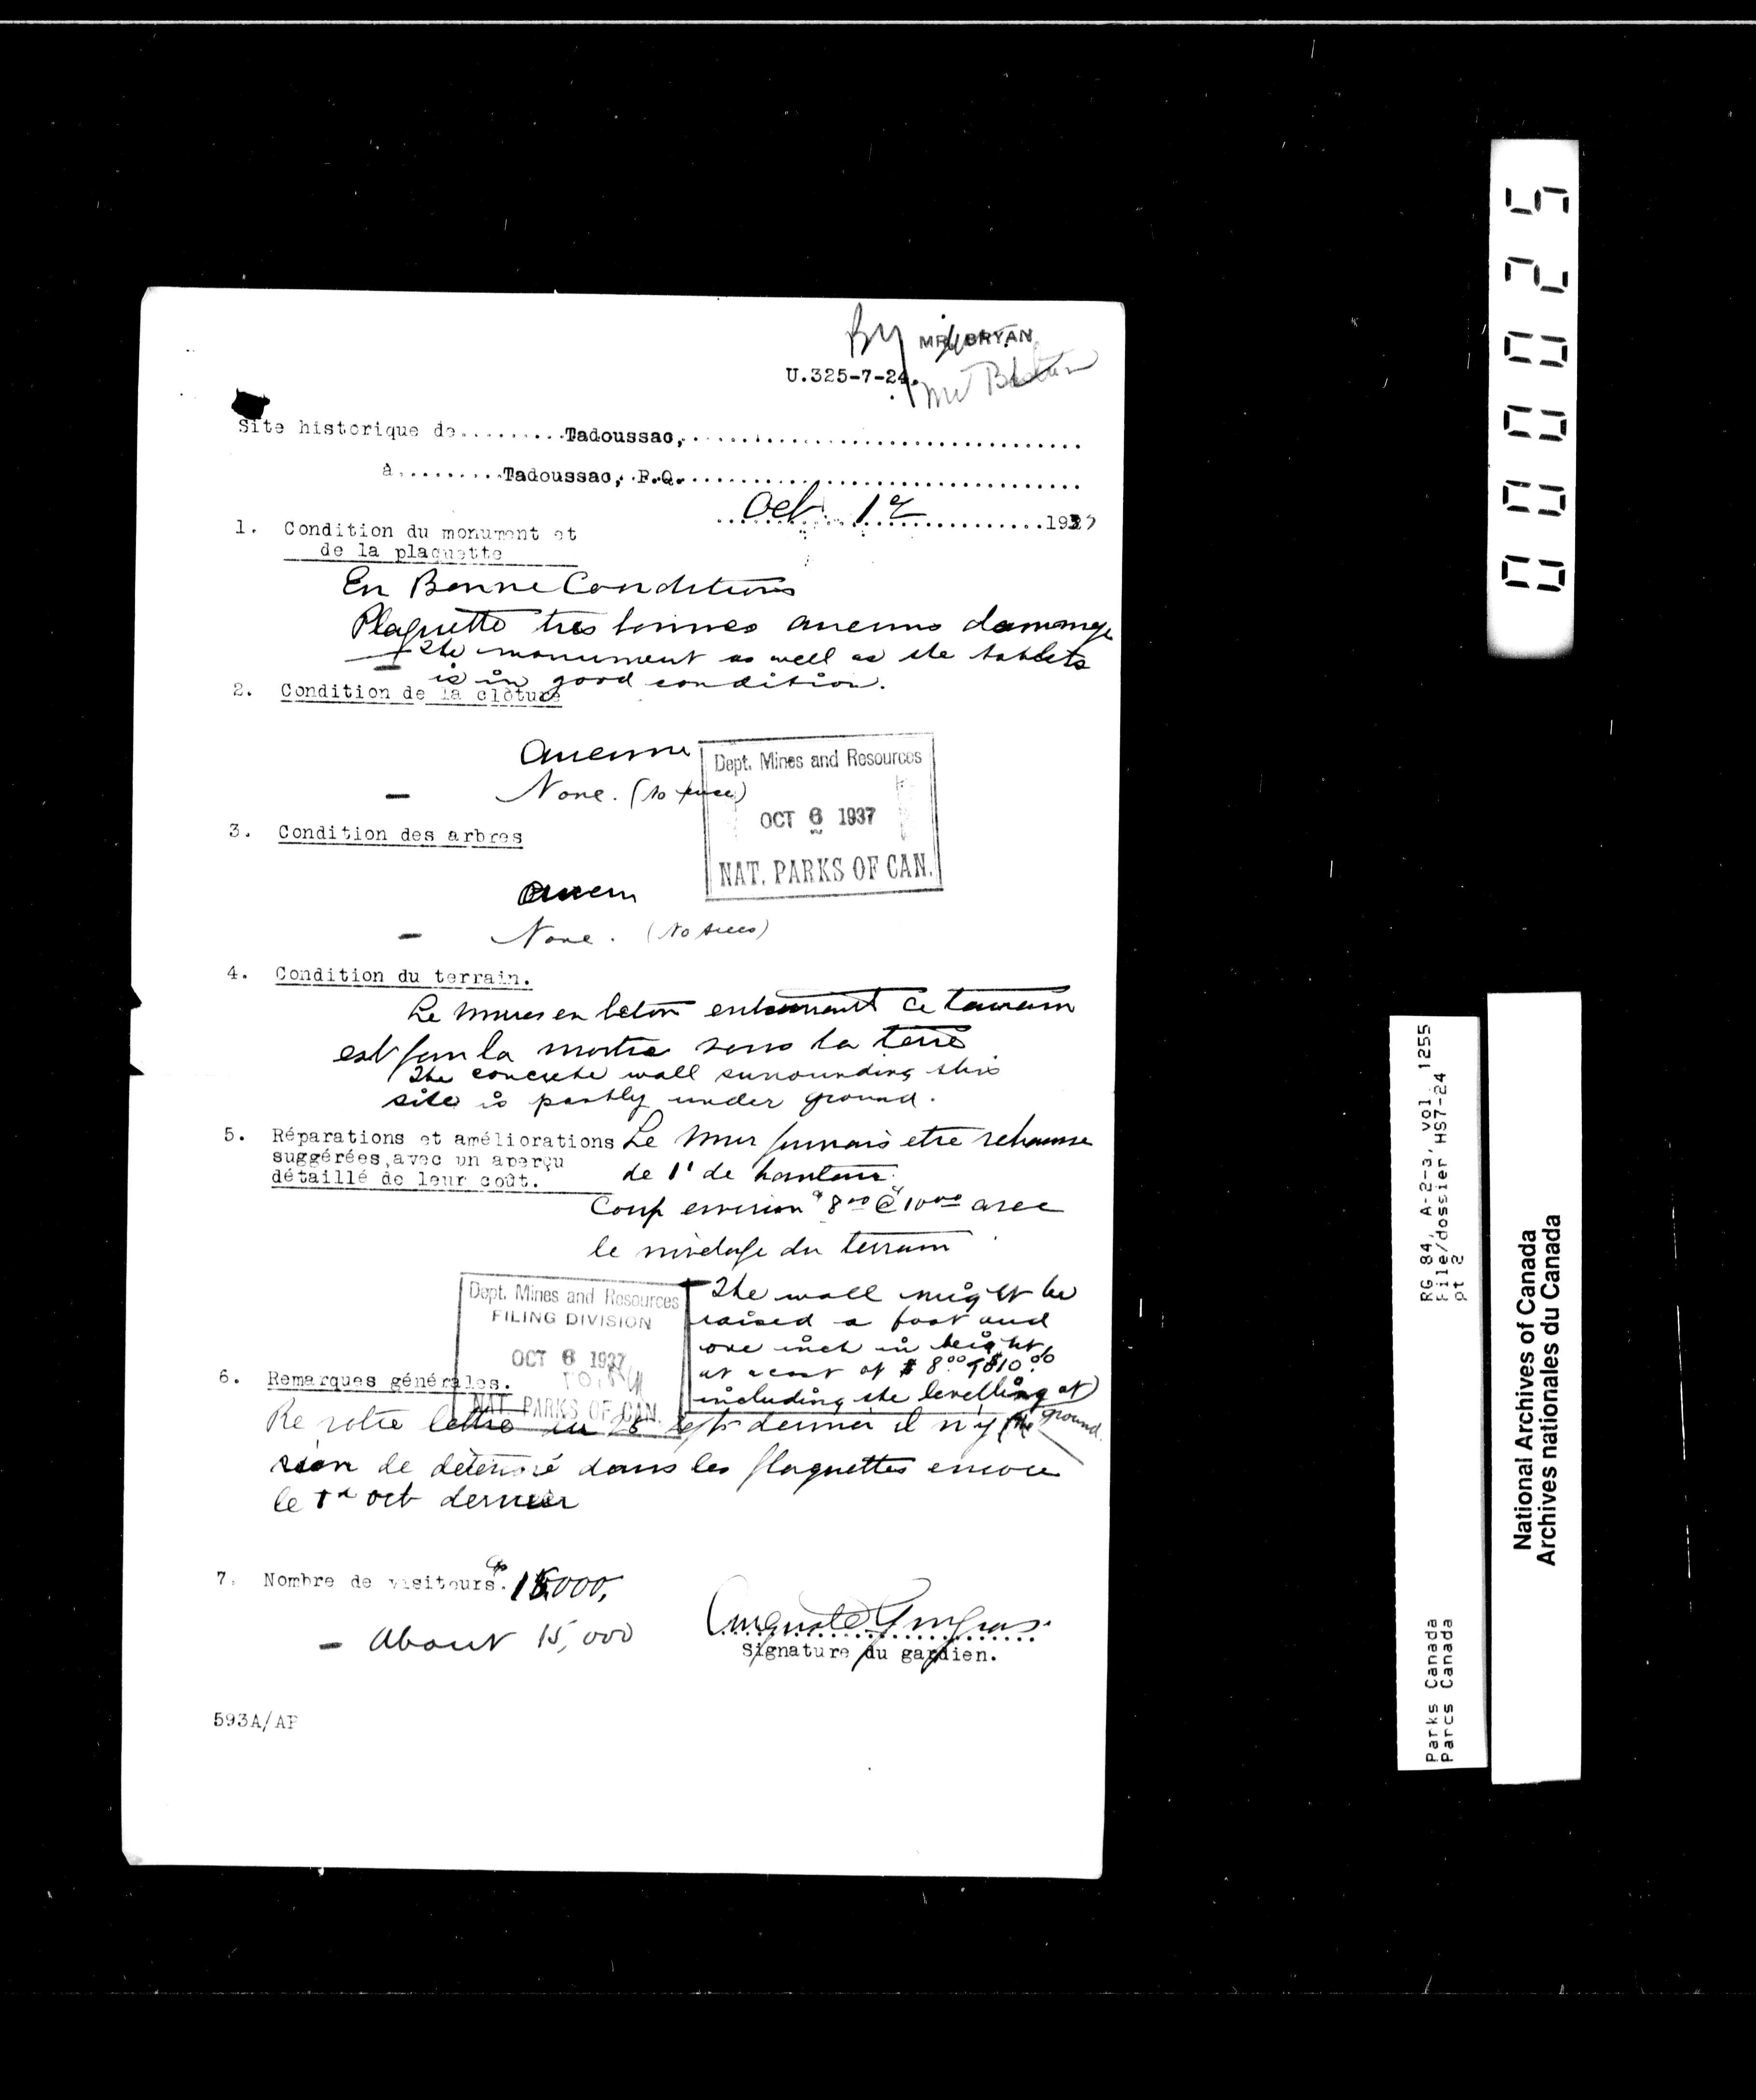 By MR. BRYAN
U.325-7-24.
Mr
Site historique de.........Tadoussac,
à.........Tadoussac, P.Q.
Oct 1er 1937
1. Condition du monument et
de la plaquette
En Bonne Conditions
Plaquette tres bonnes aucuns dommage
The monument as well as the tablets
is in good condition.
2. Condition de la clôture
aucune
- None. (No fence)
Dept. Mines and Resources
OCT 6 1937
NAT. PARKS OF CAN.
3. Condition des arbres
aucun
- None. (No trees)
4. Condition du terrain.
Le mur en beton entourant ce terrain
est sous la terre
The concrete wall surrounding this
site is partly under ground.
5. Réparations et améliorations
suggérées, avec un aperçu
détaillé de leur coût.
Le mur etre rehausse
de 1' de hauteur
environ $8.00 @ $10.00 avec
le nivelage du terrain
The wall might be
raised a foot and
one inch in height
at a cost of $8.00 to $10.00
including the levelling of
the ground.
Dept. Mines and Resources
FILING DIVISION
OCT 6 1937
NAT. PARKS OF CAN.
6. Remarques générales.
Re votre lettre du 28 sept dernier il n'y
rien de détérioré dans les plaquettes encore
le 1er oct dernier
7. Nombre de visiteurs. 15000,
- About 15,000
Auguste Gingras
Signature du gardien.
593A/AP
000025
RG 84, A-2-a, vol. 1255
File/dossier HS7-24
pt 2
Parks Canada
Parcs Canada
National Archives of Canada
Archives nationales du Canada